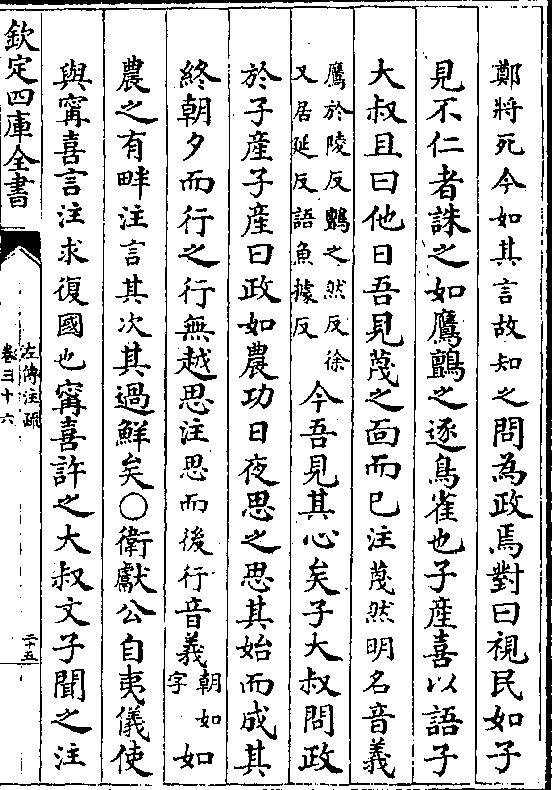 鄭將死今如其言故知之問為政焉對曰視民如子
見不仁者誅之如鷹鸇之逐鳥雀也子產喜以語子
大叔且曰他日吾見蔑之面而已注蔑然明名音義
鷹於陵反鸇之然反徐
又居延反語魚據反
今吾見其心矣子大叔問政
於子產子產曰政如農功日夜思之思其始而成其
終朝夕而行之行無越思注思而後行音義
朝如
字
如
農之有畔注言其次其過鮮矣○衛獻公自夷儀使
與甯喜言注求復國也甯喜許之大叔文子聞之注
欽定四庫全書
左傳注疏
卷三十六
二十五